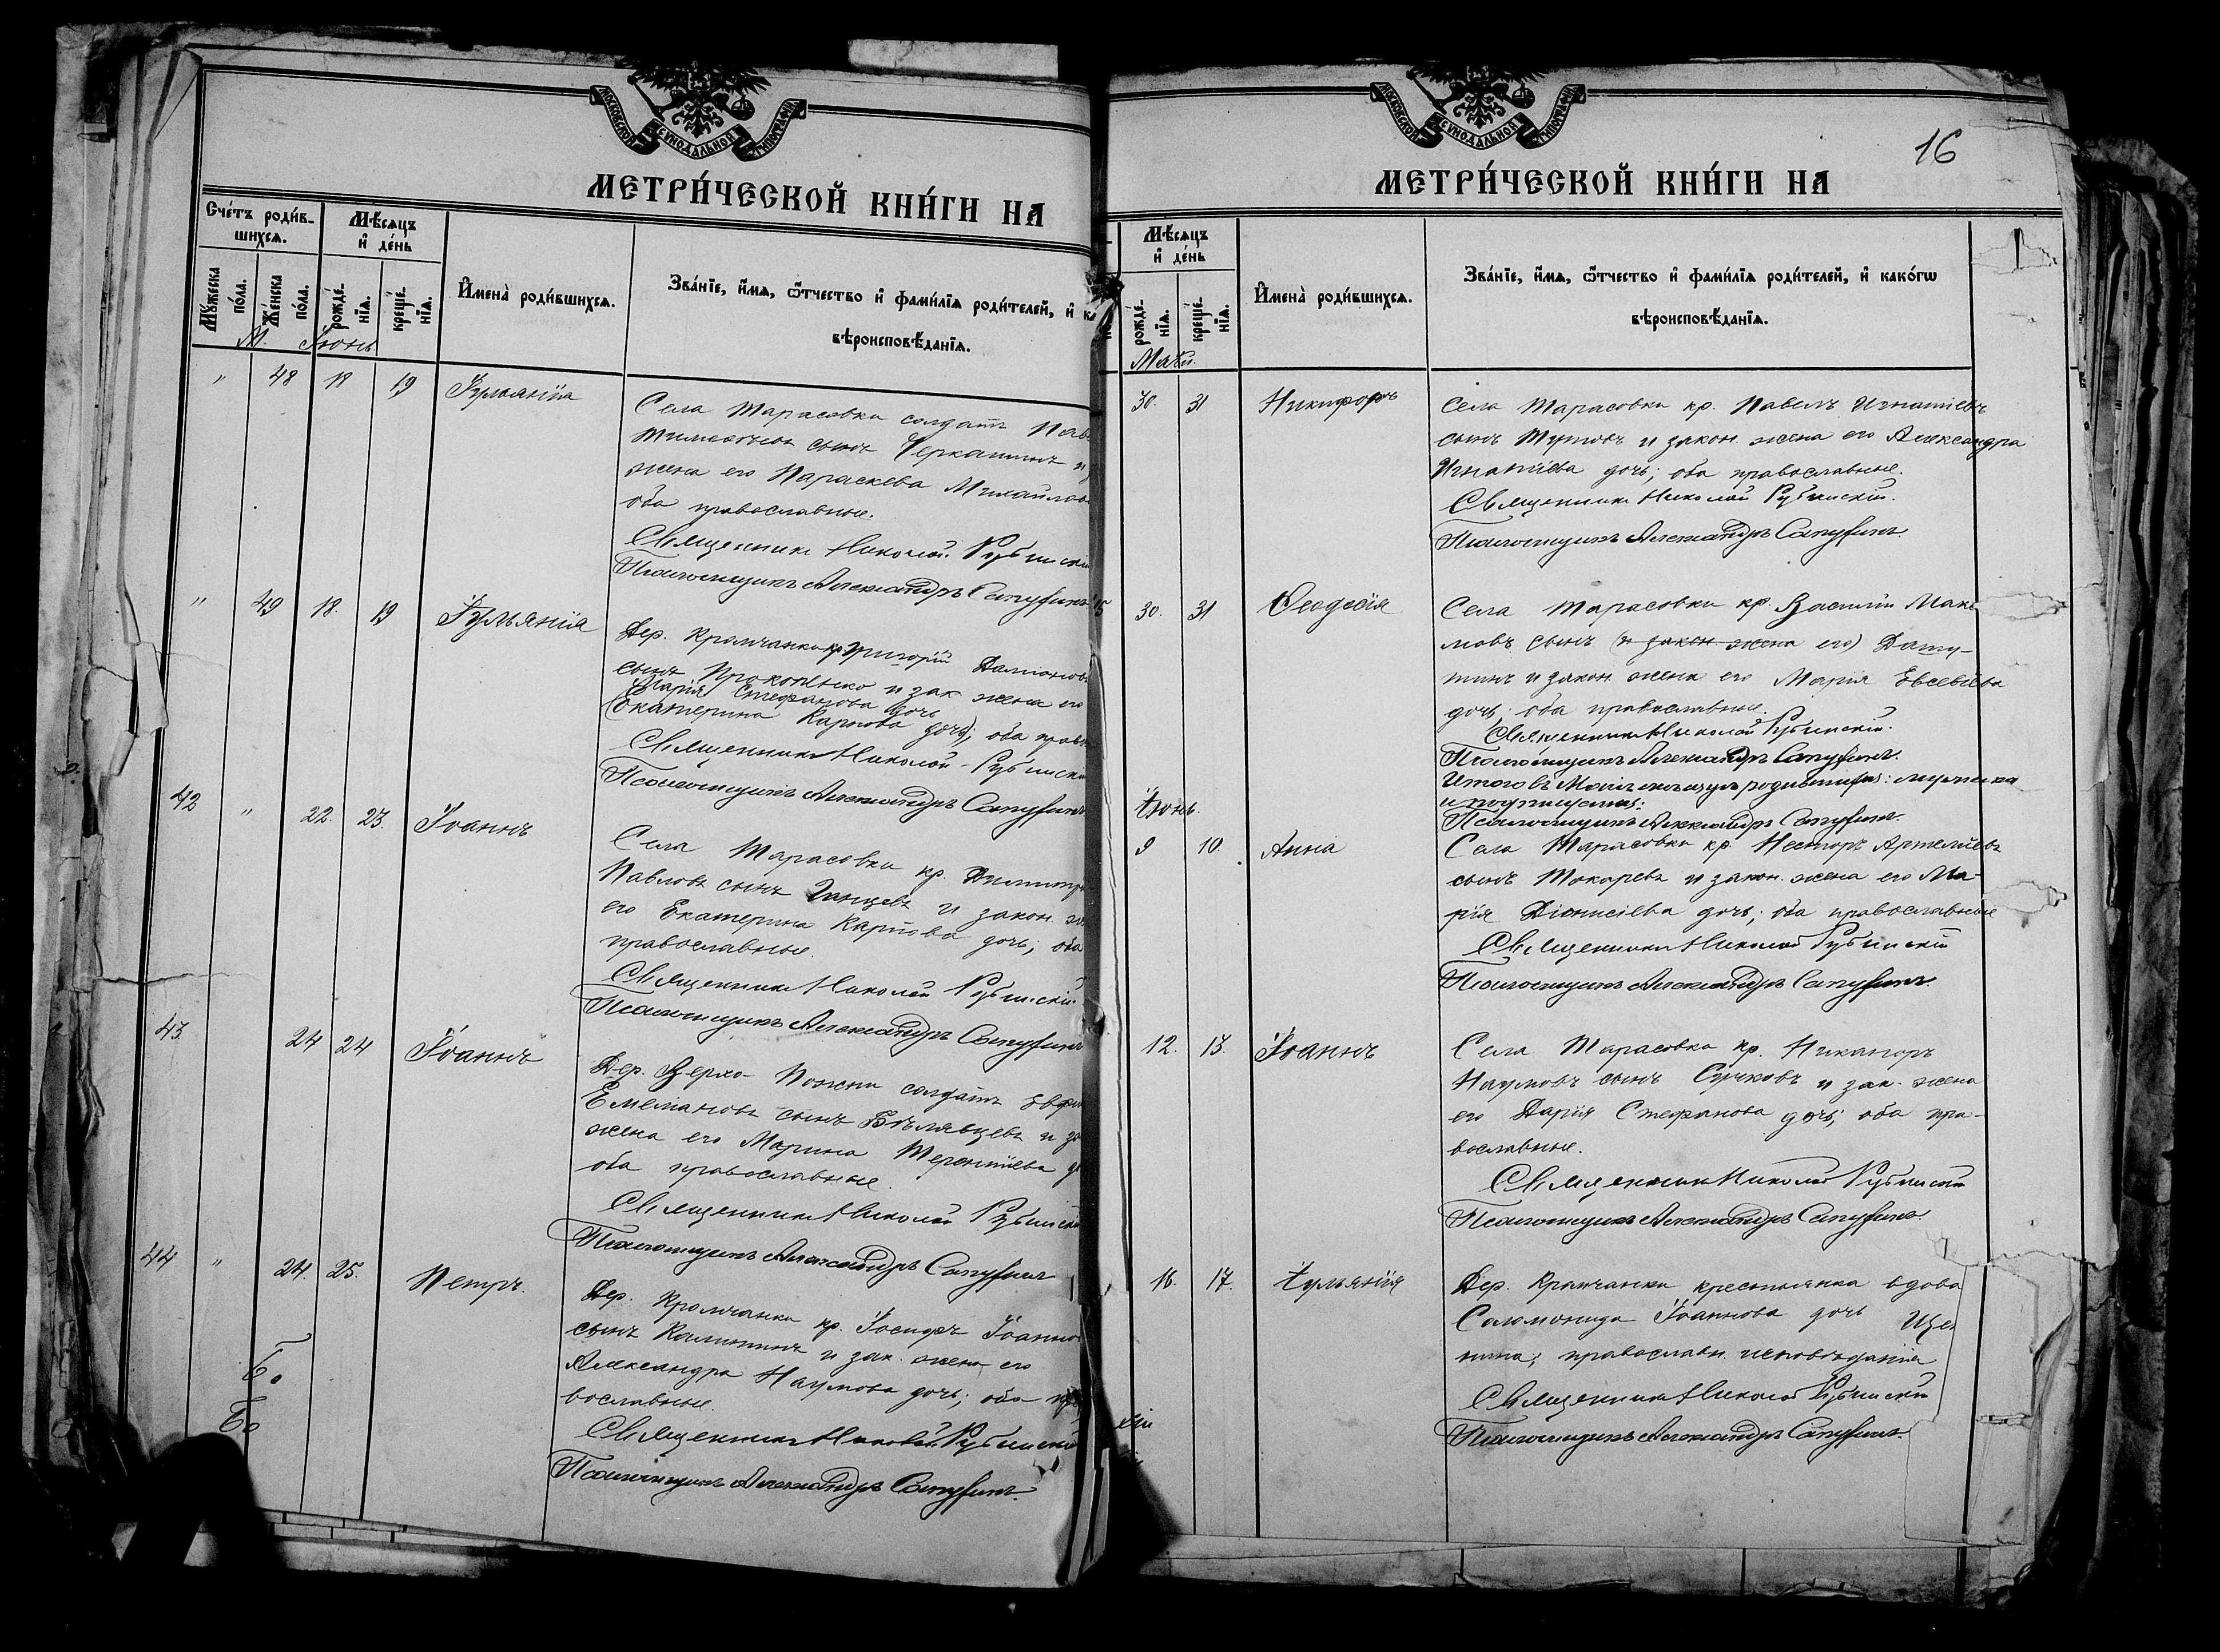 МОСКОВСКОЙ СѴНОДАЛЬНОЙ ТИПОГРАФІИ
МЕТРИ́ЧЕСКОЙ КНИ́ГИ НА
Сче́тъ роди́в-
шихся.
Мѣ́сяцъ
и҆ де́нь
Му́жеска
по́ла.
Же́нска
по́ла.
рожде́-
нїя.
креще́-
нїя.
И҆мена̀ роди́вшихся.
Зва́нїе, и҆́мя, ѻ҆́тчество и҆ фами́лїя роди́телей, и҆ к
вѣроисповѣ́данїя.
М. Іюнь
" 48 18 19 Іульянія
Села Тарасовки солдатъ Пав
Тимооеевъ сынъ Черкашинъ и
жена его Параскева Михайлов
оба православные.
Священникъ Николай Рубинскі
Псаломщикъ Александръ Сапухинъ
" 49 18. 19 Іульянія
Дер. Крамчанки кр. Григорій Даміанов
сынъ Прокопенко и зак жена его
Марія Стефанова дочь
(Екатерина Карпова дочь); оба право
Священникъ Николай Рубинскі
Псаломщикъ Александръ Сапухинъ
42 " 22. 23. Іоаннъ
Села Тарасовки кр. Димитрі
Павловъ сынъ Ганцевъ и закон. же
его Екатерина Карпова дочь; оба
православные.
Священникъ Николай Рубинскій
Псаломщикъ Александръ Сапухинъ
43. 24 24 Іоаннъ
Дер. Верхо- Пожни солдатъ Евфи
Емеліановъ сынъ Бѣлявцевъ и за
жена его Марина Терентіева д
оба православные.
Священникъ Николай Рубинскі
Псаломщикъ Александръ Сапухинъ
44 " 24. 25. Петръ.
Дер. Крамчанки кр. Іосифъ Іоанно
сынъ Калининъ и зак. жена его
Александра Наумова дочь; оба пра
вославные.
Священникъ Николай Рубинскій
Псаломщикъ Александръ Сапухинъ.
16
МОСКОВСКОЙ СѴНОДАЛЬНОЙ ТИПОГРАФІИ
МЕТРИ́ЧЕСКОЙ КНИ́ГИ НА
Мѣ́сяцъ
и҆ де́нь
рожде́-
нїя.
креще́-
нїя.
И҆мена̀ роди́вшихся.
Зва́нїе, и҆́мя, ѻ҆́тчество и҆ фами́лїя роди́телей, и҆ како́гѡ
вѣроисповѣ́данїя.
Май.
30. 31 Никифоръ
Села Тарасовки кр. Павелъ Игнатіевъ
сынъ Тутовъ и закон. жена его Александра
Игнатіева дочь; оба православные.
Священникъ Николай Рубинскій.
Псаломщикъ Александръ Сапухинъ.
30. 31 Ѳеодосія
Села Тарасовки кр. Василій Макси
мовъ сынъ (и закон жена его)
и закон. жена его Марія Евсевіева
дочь; оба православные.
Священникъ Николай Рубинскій.
Псаломщикъ Александръ Сапухинъ.
Итого въ Маѣ мѣсяцѣ родившихся: мужеска
Псаломщикъ Александръ Сапухинъ.
Іюнь.
9 10. Анна
Села Тарасовки кр. Несторъ Артеміевъ
сынъ Токаревъ и закон. жена его Ма-
рія Діонисіева дочь; оба православные
Священникъ Николай Рубинскій
Псаломщикъ Александръ Сапухинъ.
12. 13. Іоаннъ
Села Тарасовки кр. Никаноръ
Наумовъ сынъ Сучковъ и зак. жена
его Дарія Стефанова дочь; оба пра-
вославные.
Священникъ Николай Рубинскій
Псаломщикъ Александръ Сапухинъ.
16. 17. Іульянія
Дер. Крамчанки крестьянка вдова
Саломонида Іоаннова дочь
православн. исповѣданія
Священникъ Николай Рубинскій
Псаломщикъ Александръ Сапухинъ.